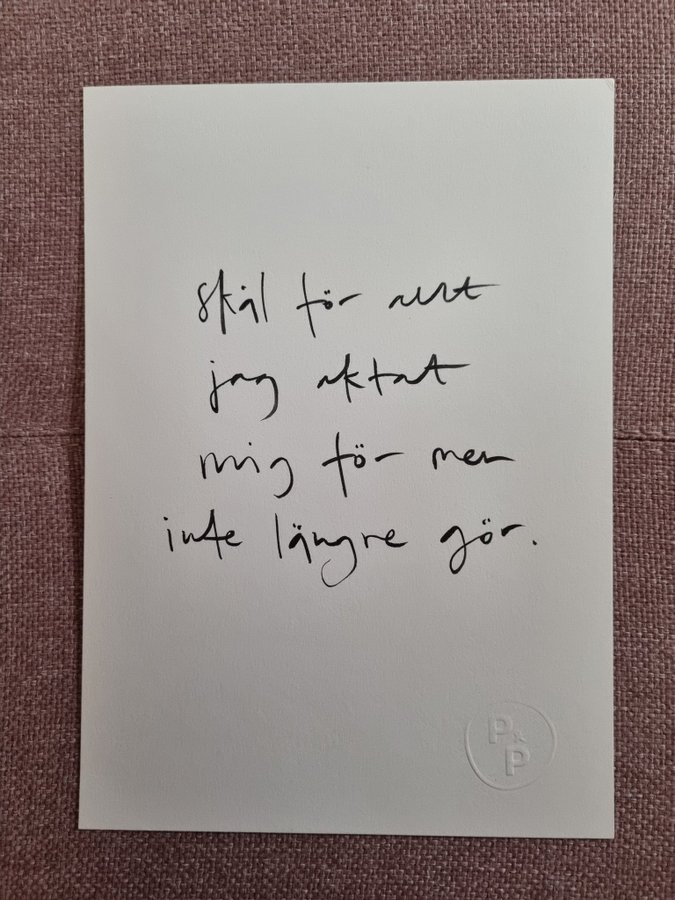 skål för allt
jag aktat
mig för men
inte längre gör.
P&P